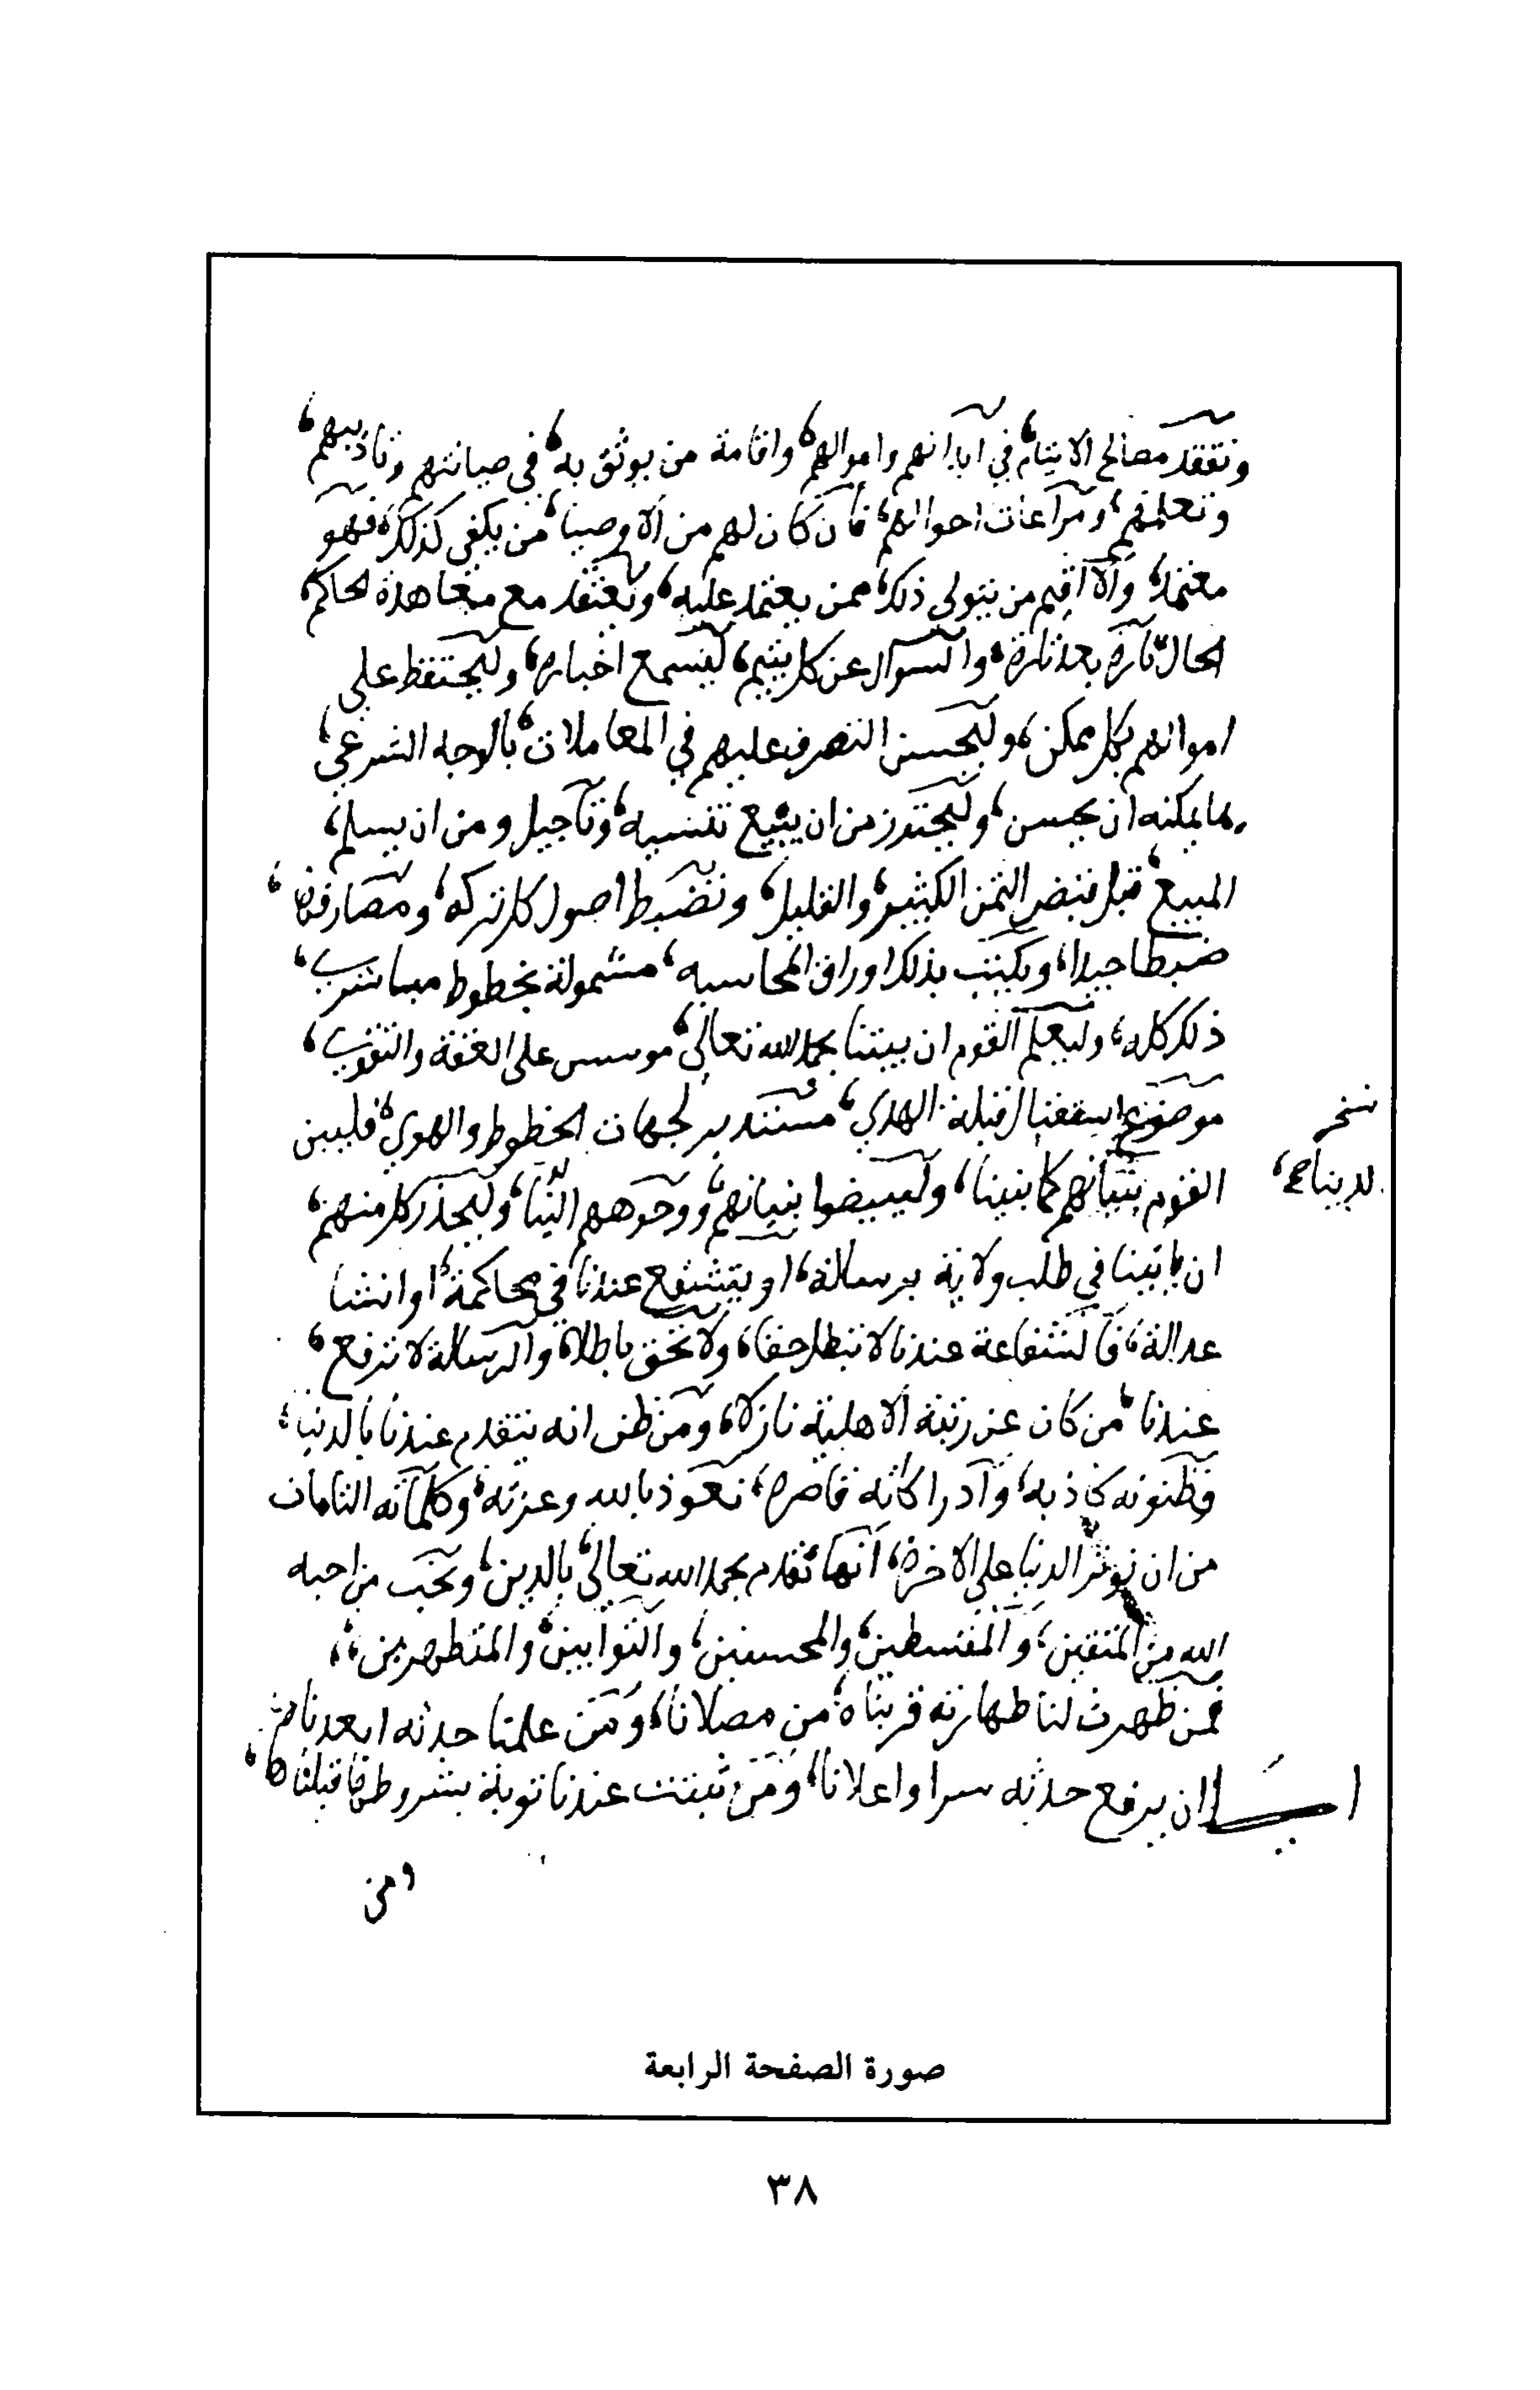 وتفقد مصالح الايتام، في ابدانهم واموالهم، واقامة من يوثق به، في صيانتهم وتاديبهم،
وتعليمهم، ومراعات احوالهم، فان كان لهم من الاوصيا، من يكفي كذلك، فهو
معتمد، والا اقيم من يتولى ذلك، ممن يعتمد عليه، مع معاهدة الحاكم،
الحال تارة بعد تارة، والسوال عن كل يتيم، ليسمع اخباره، وليحتفظ على
اموالهم بكل ممكن، وليحسن التصرف عليهم في المعاملات، بالوجه الشرعي،
بما يمكنه ان يحسن، وليحترز من ان يبيع بنسيه، وتاجيل ومن ان يسلم،
المبيع، قبل قبض الثمن الكثير، والقليل، وتضبط اصول كل تركه، ومصارفها،
ضبطا جيدا، ويكتب بذلك اوراق المحاسبه، مشمولة بخطوط مباشري،
ذلك كله، وليعلم القوم ان بيتنا بحمد الله تعالى، موسس على العفة والتقوى،
موضوع استقبال قبلة الهدى، مستدبر لجهات الحظوظ والهوى، فليبين
القوم بنيانهم كما بنينا، وليبيضوا بنيانهم، ووجوههم الينا، وليحذر كل منهم،
لدينا صح،
ان ياتينا في طلب ولاية برسالة، او يتشفع عندنا في محاكمة، او انشا
عدالة، فالشفاعة عندنا لا تبطل حقا، ولا تحق باطلا، والرسالة لا ترفع،
عندنا، من كان عن رتبة الاهلية نازلا، ومن ظن انه يتقدم عندنا بالدنيا،
فظنونه كاذبه، وادراكاته قاصره، نعوذ بالله وعزته، وكلماته التامات
من ان نوثر الدنيا على الاخرة، انما نقدم بحمد الله تعالى، بالدين، ونحب من احبه
الله من المتقين، والمقسطين، والمحسنين، والتوابين، والمتطهرين،،
فمن ظهرت لنا طهارته قربناه، من مصلانا، ومن علمنا حدثه ابعدناه
الى ان يرفع حدثه سرا واعلانا، ومن ثبتت عندنا توبة بشروطها قبلناها،
ومن
صورة الصفحة الرابعة
٣٨